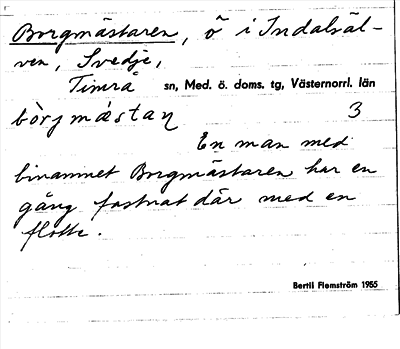 Borgmästaren, ö i Indalsäl-
ven, Svedje,
Timrå sn, Med. ö. doms. tg, Västernorrl. län
3
En man med
binamnet Borgmästaren har en
gång fastnat där med en
flotte.
Bertil Flemström 1955